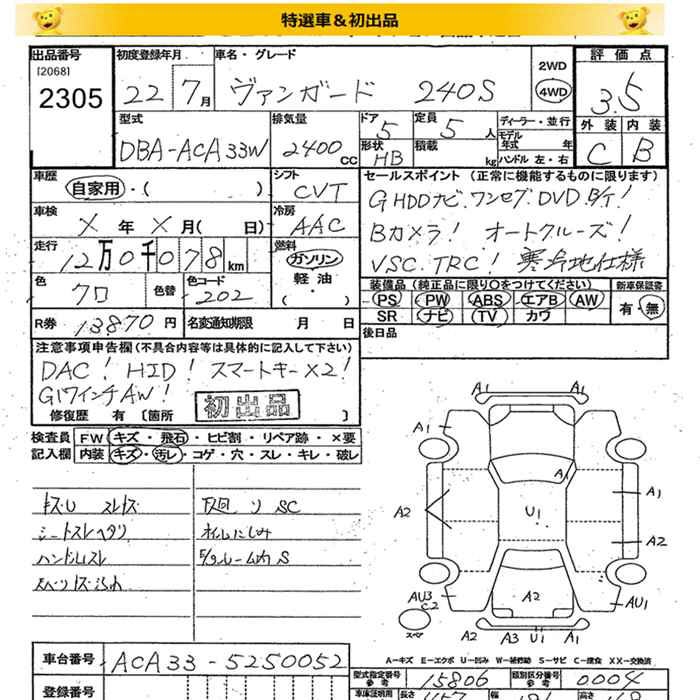 特選車&初出品
出品番号 初度登録年月 車名・グレード 評価点
[2068] 2WD
2305 22 7月 ヴァンガード 240S 4WD 3.5
型式 排気量 ドア 定員 ディーラー・並行 外装 内装
DBA-ACA33W 2400CC 5 5人 モデル年式 年 C B
形状 積載 kg ハンドル 左・右
HB
車歴 シフト セールスポイント (正常に機能するものに限ります)
自家用・( ) CVT G HDDナビ.ワンセグ DVD.B/T!
車検 冷房 Bカメラ! オートクルーズ!
X年X月( 日) AAC VSC.TRC! 寒冷地仕様
走行 燃料
12万0千078km ガソリン 軽油・( )
色 色替 色コード 装備品 (純正品に限り○をつけてください) 新車保証書
クロ 202 PS PW ABS エアB AW 有・無
SR ナビ TV カワ
R券 13870円 名変通知期限 月 日 後日品
注意事項申告欄 (不具合内容等は具体的に記入して下さい)
DAC! HID! スマートキー×2!
G17インチAW!
修復歴 有 〔箇所 初出品 〕
検査員 FW キズ・飛石・ヒビ割・リペア跡・×要
記入欄 内装 キズ・汚レ・コゲ・穴・スレ・キレ・破レ
下回り SC
シートスレヘタリ オイルにじみ
ハンドルスレ
A1 A1
A1
A1
A2 U1 A1
A2
AU3 C2 A2 AU1
スペア A2 A3 U1 A1
A-キズ E-エクボ U-凹み W-補修跡 S-サビ C-腐食 XX-交換済
車台番号 ACA33-5250052 型式指定番号 参考 15806 類別区分番号 参考 0004
登録番号 車庫証明用 長さ 幅 高さ